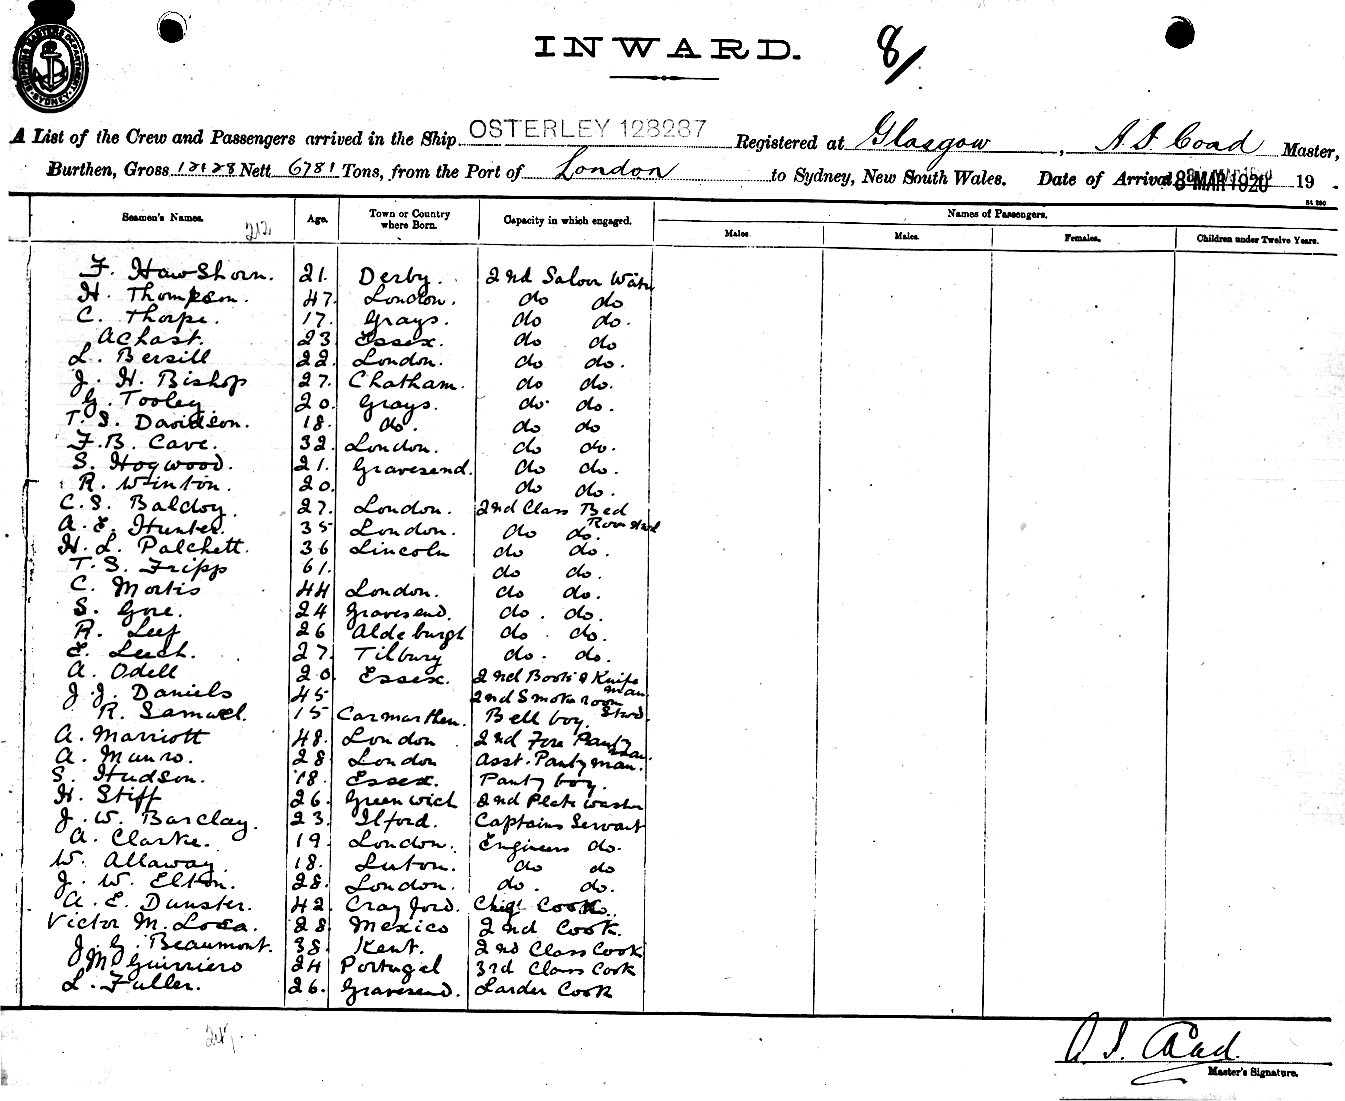 SHIPPING MASTERS DEPARTMENT SYDNEY
INWARD.
8/
A List of the Crew and Passengers arrived in the Ship OSTERLEY 128287 Registered at Glasgow, A. J. Coad Master,
Burthen, Gross 12128 Nett 6781 Tons, from the Port of London to Sydney, New South Wales. Date of Arrival 8 MAR 1920 19 .
Seamen's Names. Age. Town or Country where Born. Capacity in which engaged. Names of Passengers.
Males. Males. Females. Children under Twelve Years.
F. Hawshorn. 21. Derby. 2nd Saloon
H. Thompson. 47. London. do do
C. Thorpe. 17. Grays. do do.
A Chast. 23 Essex. do do
L. Bersill 22. London. do do.
J. H. Bishop 27. Chatham. do do.
G. Tooley. 20. Grays. do. do.
T. S. Davidson. 18. do. do do
F. B. Cave. 32. London. do do.
S. Hogwood. 21. Gravesend. do do.
R. Winton. 20. do do.
C. S. Baldoy. 27. London. 2nd Class Bed Room Stwd
A. E. Hunter. 35 London. do do.
H. L. Palchett. 36 Lincoln do do.
T. S. Fripp 61. do do.
C. Mortis 44 London. do do.
S. Gne. 24 Gravesend. do. do.
R. Leef 26 Aldeburgh do. do.
E. Leech. 27. Tilbury do. do.
A. Odell 20 Essex. 2nd Boots & Knife man
J. J. Daniels 45 2nd Smoke room Stwd.
R. Samuel. 15 Carmarthen. Bell boy.
A. Marriott 48. London 2nd Fore Panty man
A. Munro. 28 London Asst. Panty man.
S. Hudson. 18. Essex. Panty boy.
H. Stiff 26. Greenwich 2nd Plate washr
J. W. Barclay. 23. Ilford. Captains Servant
A. Clarke. 19 London. Engineers do.
W. Allaway. 18. Luton. do do
J. W. Elton. 28. London. do. do.
A. E. Dunster. 42 Crayford. Chief Cook.
Victor M. Losa. 28 Mexico 2nd Cook.
J. G. Beaumont. 38. Kent. 2nd Class Cook
M Guirriero 24 Portugal 3rd Class Cook
L. Fuller. 26. Gravesend. Larder Cook
A. J. Coad.
Master's Signature.